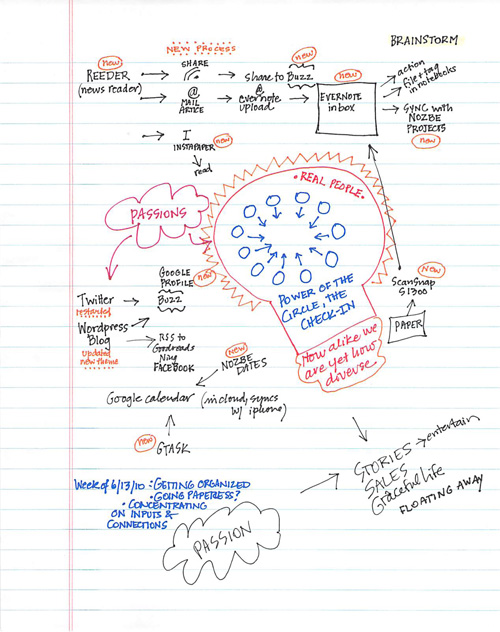 BRAINSTORM
NEW PROCESS
new
REEDER
(news reader)
SHARE
new
share to Buzz
@
MAIL
ARTICE
@
evernote
upload
new
EVERNOTE
inbox
action
file + tag
in notebooks
SYNC with
NOZBE
PROJECTS
new
I
INSTAPAPER
new
read
• REAL PEOPLE •
PASSIONS
POWER OF THE
CIRCLE, THE
CHECK-IN
How alike we
are yet how
diverse
New
ScanSnap
S1300
PAPER
GOOGLE
PROFILE
new
Buzz
Twitter
restarted
Wordpress
Blog
updated
new theme
RSS to
Goodreads
Ning
FACEBOOK
New
NOZBE
DATES
Google calendar (in cloud, syncs
w/ iphone)
new
GTASK
STORIES
entertain
SALES
Graceful Life
FLOATING AWAY
Week of 6/13/10 : GETTING ORGANIZED
• GOING PAPERESS?
• CONCENTRATING
ON INPUTS &
CONNECTIONS
PASSION